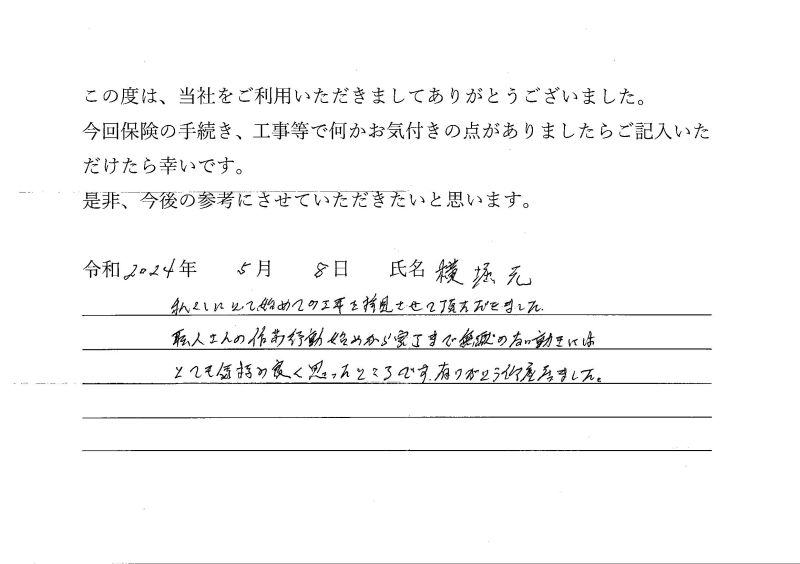 この度は、当社をご利用いただきましてありがとうございました。
今回保険の手続き、工事等で何かお気付きの点がありましたらご記入いた
だけたら幸いです。
是非、今後の参考にさせていただきたいと思います。
令和2024年 5月 8日 氏名 横堀 元
私としにとって始めての工事を拝見させて頂きました。
職人さんの作業行動始めから完了まで無駄の有い動きには
とても気持の良く思ったところです。有りがとう御座居ました。